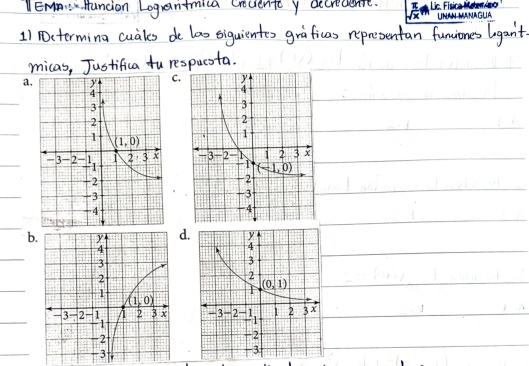 TEMA: Función Logarítmica creciente y decreciente.
Lic. Física-Matemática
UNAN-MANAGUA
1) Determina cuáles de las siguientes gráficas representan funciones logarít-
micas, Justifica tu respuesta.
a.
y
4
3
2
1
(1, 0)
-3 -2 -1 1 2 3 x
-1
-2
-3
-4
c.
y
4
3
2
1
-3 -2 -1 1 2 3 x
-1
(-1, 0)
-2
-3
-4
b.
y
4
3
2
1
(1, 0)
-3 -2 -1 1 2 3 x
-1
-2
-3
d.
y
4
3
2
1
(0, 1)
-3 -2 -1 1 2 3 x
-1
-2
-3